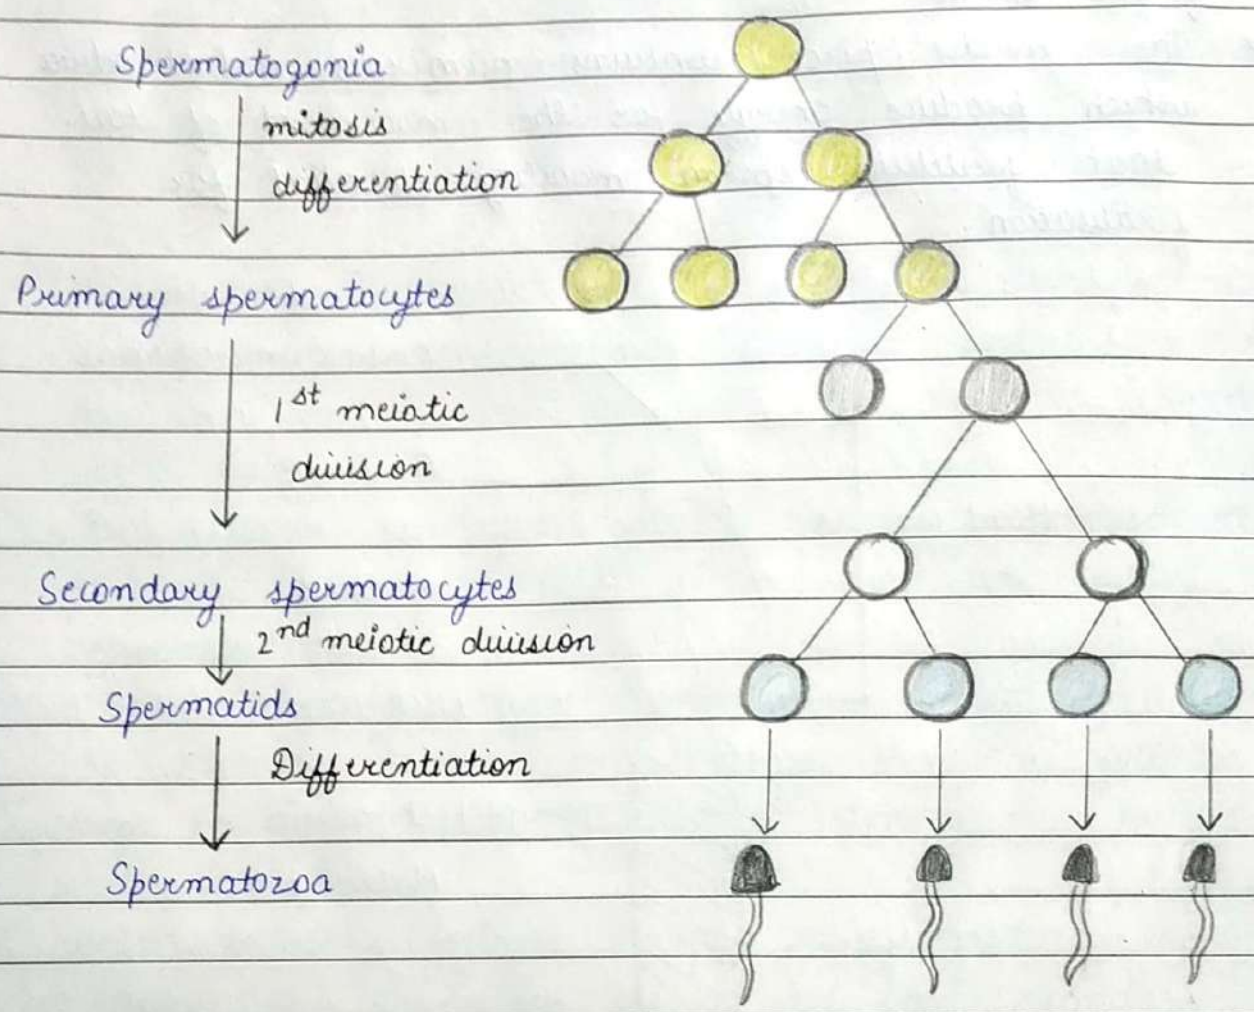 Spermatogonia
mitosis
differentiation
Primary spermatocytes
1st meiotic
division
Secondary spermatocytes
2nd meiotic division
Spermatids
Differentiation
Spermatozoa